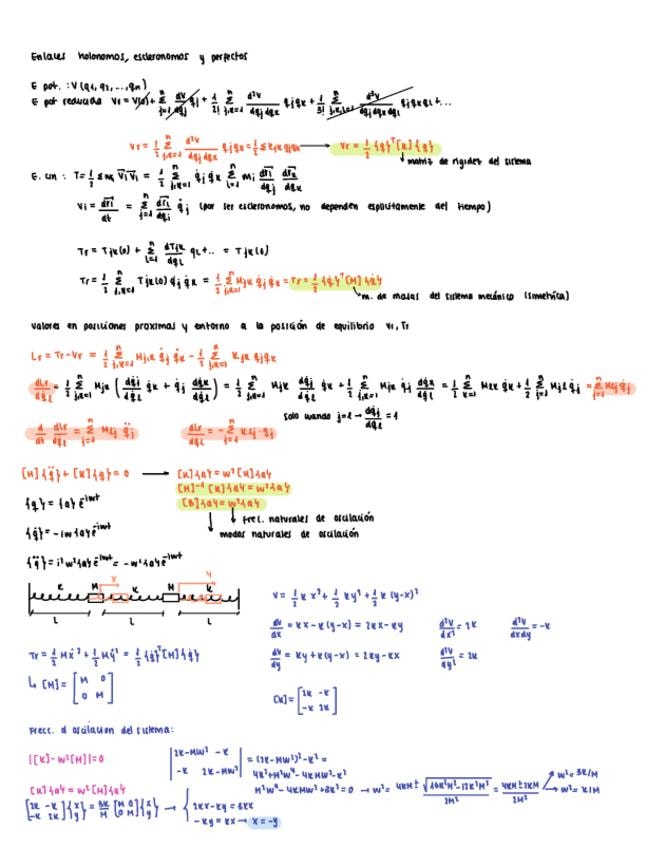 Enlaces holonomos, escleronomos y perfectos
E pot. : V(q1, q2, ..., qn)
E pot reducida Vr = V(0) + Σ_{j=1}^{n} dV/dqj qj + 1/2! Σ_{j,k=1}^{n} d²V/dqjdqk qjqk + 1/3! Σ_{j,k,l=1}^{n} d³V/dqjdqkdql qjqkql + ...
Vr = 1/2 Σ_{j,k=1}^{n} d²V/dqjdqk qjqk = 1/2 Σ kjk qjqk → Vr = 1/2 {q}ᵀ[K]{q}
matriz de rigidez del sistema
E. cin : T = 1/2 Σ mi Vi Vi = 1/2 Σ_{j,k=1}^{n} q̇j q̇k Σ mi dri/dqj dri/dqk
Vi = dri/dt = Σ_{j=1}^{n} dri/dqj q̇j (por ser escleronomos, no dependen explicitamente del tiempo)
Tr = Tjk(0) + Σ_{l=1}^{n} dTjk/dql ql + .. = Tjk(0)
Tr = 1/2 Σ_{j,k=1}^{n} Tjk(0) q̇j q̇k = 1/2 Σ_{j,k=1}^{n} Mjk q̇j q̇k = Tr = 1/2 {q̇}ᵀ[M]{q̇}
m. de masas del sistema mecánico (simetrica)
Valores en posiciones proximas y entorno a la posición de equilibrio Vr, Tr
Lr = Tr - Vr = 1/2 Σ_{j,k=1}^{n} Mjk q̇j q̇k - 1/2 Σ_{j,k=1}^{n} Kjk qjqk
dLr/dq̇l = 1/2 Σ_{j,k=1}^{n} Mjk (dq̇j/dq̇l q̇k + q̇j dq̇k/dq̇l) = 1/2 Σ_{j,k=1}^{n} Mjk dq̇j/dq̇l q̇k + 1/2 Σ_{j,k=1}^{n} Mjk q̇j dq̇k/dq̇l = 1/2 Σ_{k=1}^{n} Mlk q̇k + 1/2 Σ_{j=1}^{n} Mjl q̇j = Σ_{j=1}^{n} Mlj q̇j
Solo cuando j=l → dq̇j/dq̇l = 1
d/dt dLr/dq̇l = Σ_{j=1}^{n} Mlj q̈j dLr/dql = - Σ_{j=1}^{n} Klj·qj
[M]{q̈} + [K]{q} = 0 → [K]{a} = w²[M]{a}
[M]⁻¹[K]{a} = w²{a}
{q} = {a} e^{-iwt} [B]{a} = w²{a}
frec. naturales de oscilación
{q̇} = -iw{a}e^{-iwt} modos naturales de oscilación
{q̈} = i²w²{a}e^{-iwt} = -w²{a}e^{-iwt}
K M x K M y K
L L L
V = 1/2 K x² + 1/2 K y² + 1/2 K (y-x)²
dV/dx = Kx - K(y-x) = 2Kx - Ky d²V/dx² = 2K d²V/dxdy = -K
Tr = 1/2 Mẋ² + 1/2 Mẏ² = 1/2 {q̇}ᵀ[M]{q̇} dV/dy = Ky + K(y-x) = 2Ky - Kx d²V/dy² = 2K
↳ [M] = [M 0; 0 M] [K] = [2K -K; -K 2K]
Frecc. d oscilacion del sistema:
|[K] - w²[M]| = 0 |2K-MW² -K; -K 2K-MW²| = (2K-MW²)² - K² =
4K² + M²W⁴ - 4KMW² - K²
M²W⁴ - 4KMW² + 3K² = 0 → w² = 4KM ± √(16K²M² - 12K²M²) / 2M² = 4KM ± 2KM / 2M² → w² = 3K/M → w² = K/M
[K]{a} = w²[M]{a}
[2K -K; -K 2K]{x; y} = 3K/M [M 0; 0 M]{x; y} → { 2Kx - Ky = 3Kx
-Ky = Kx → x = -y